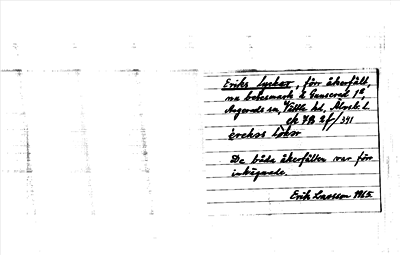 Eriks lyckor, förr åkerfält,
nu betesmark å Gunserud 1²,
Angereds sn, Vättle hd, Älvsb. l.
ek 7B 2f/391
èrekss løkər
De båda åkerfälten var för
inhägnade.
Erik Larsson 1965.